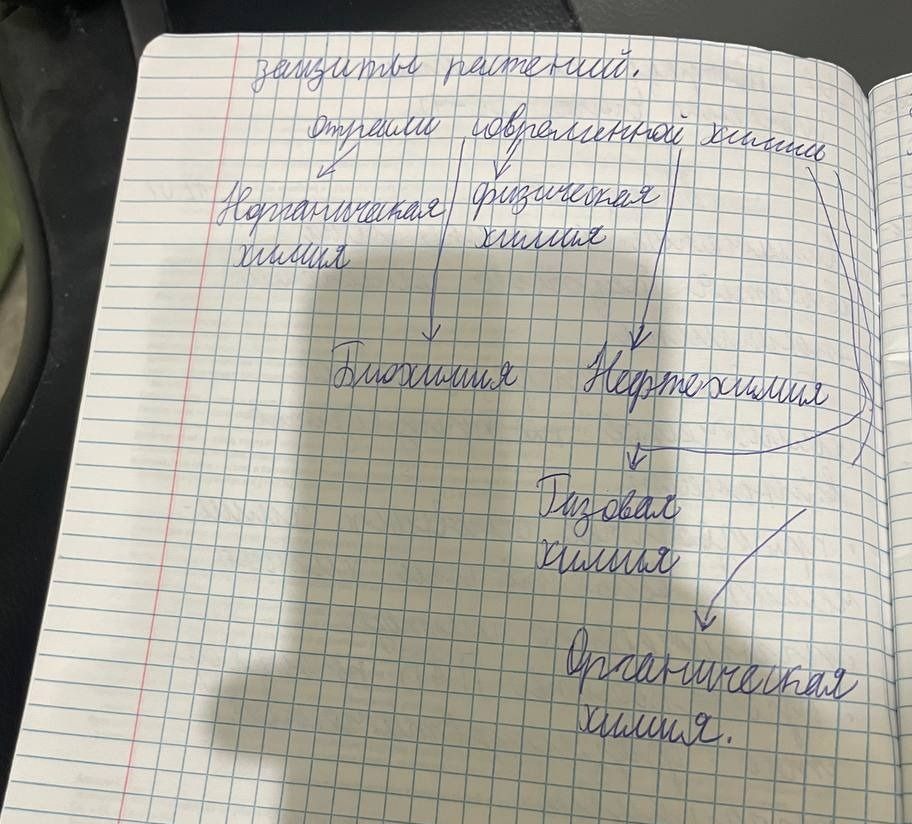 защиты растений.
отрасли современной химии
Неорганическая физическая
химия химия
Биохимия Нефтехимия
Газовая
химия
Органическая
химия.